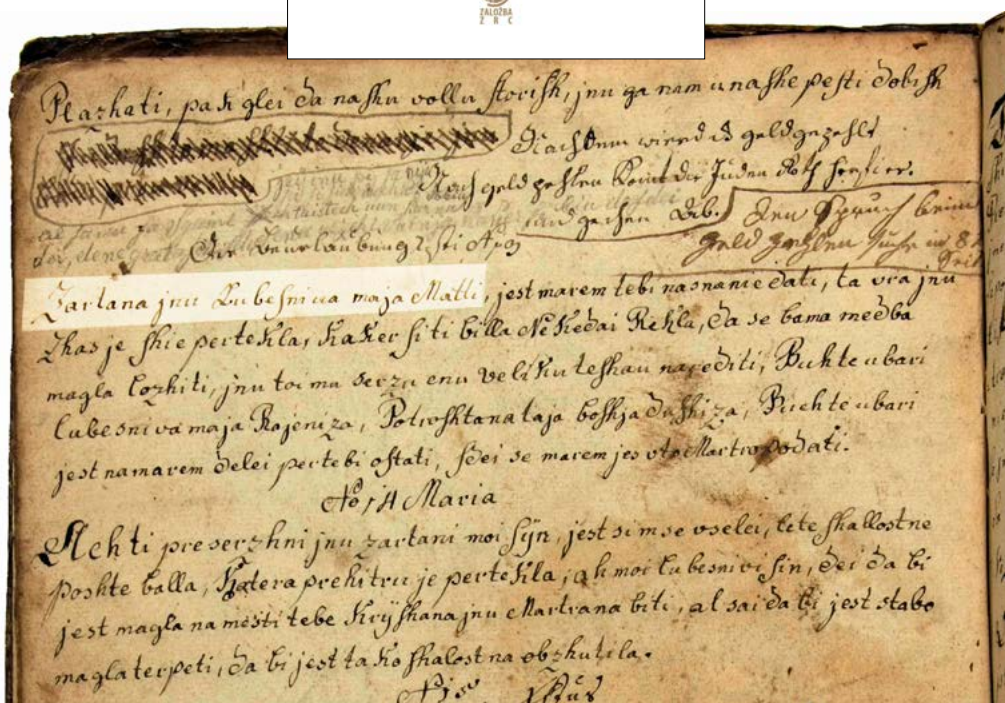 ZALOŽBA
Z R C
Plazhati, pak glei da nashu vollu storish, jnu ga nam unashe pesti dobish
Nachdem wierd das geld gezehlt
Nach geld zehlen komt der Juden Roth herfier.
und gechen ab. Den Spruch beim
geld zechlen suche
Zartana jnu Lubesniua maja Matti, jest marem tebi nasnanie dati, ta vra jnu
Zhas je shie pertekla, kaker si ti billa Nekedai Rekla, da se bama medba
magla lozhiti, jnu toimu serzu enu veliku teshau narediti, Buhte ubari
lubesniva maja Rojeniza, Potroshtana taja boshja dushiza, Buehte ubari
jest namarem delei pertebi ostati, sdei se marem jes vto Martro podati.
No 14 Maria
Ach ti preserzhni jnu zartani moi sÿn, jest sim se vselei, lete shallostne
poshte balla, katera prehitru je pertekla, ah moi lubesnivi sin, dei da bi
jest magla namesti tebe kryshana jnu Martrana biti, al sai da bi jest stabo
magla terpeti, da bi jest tako shalostna obzhutila.